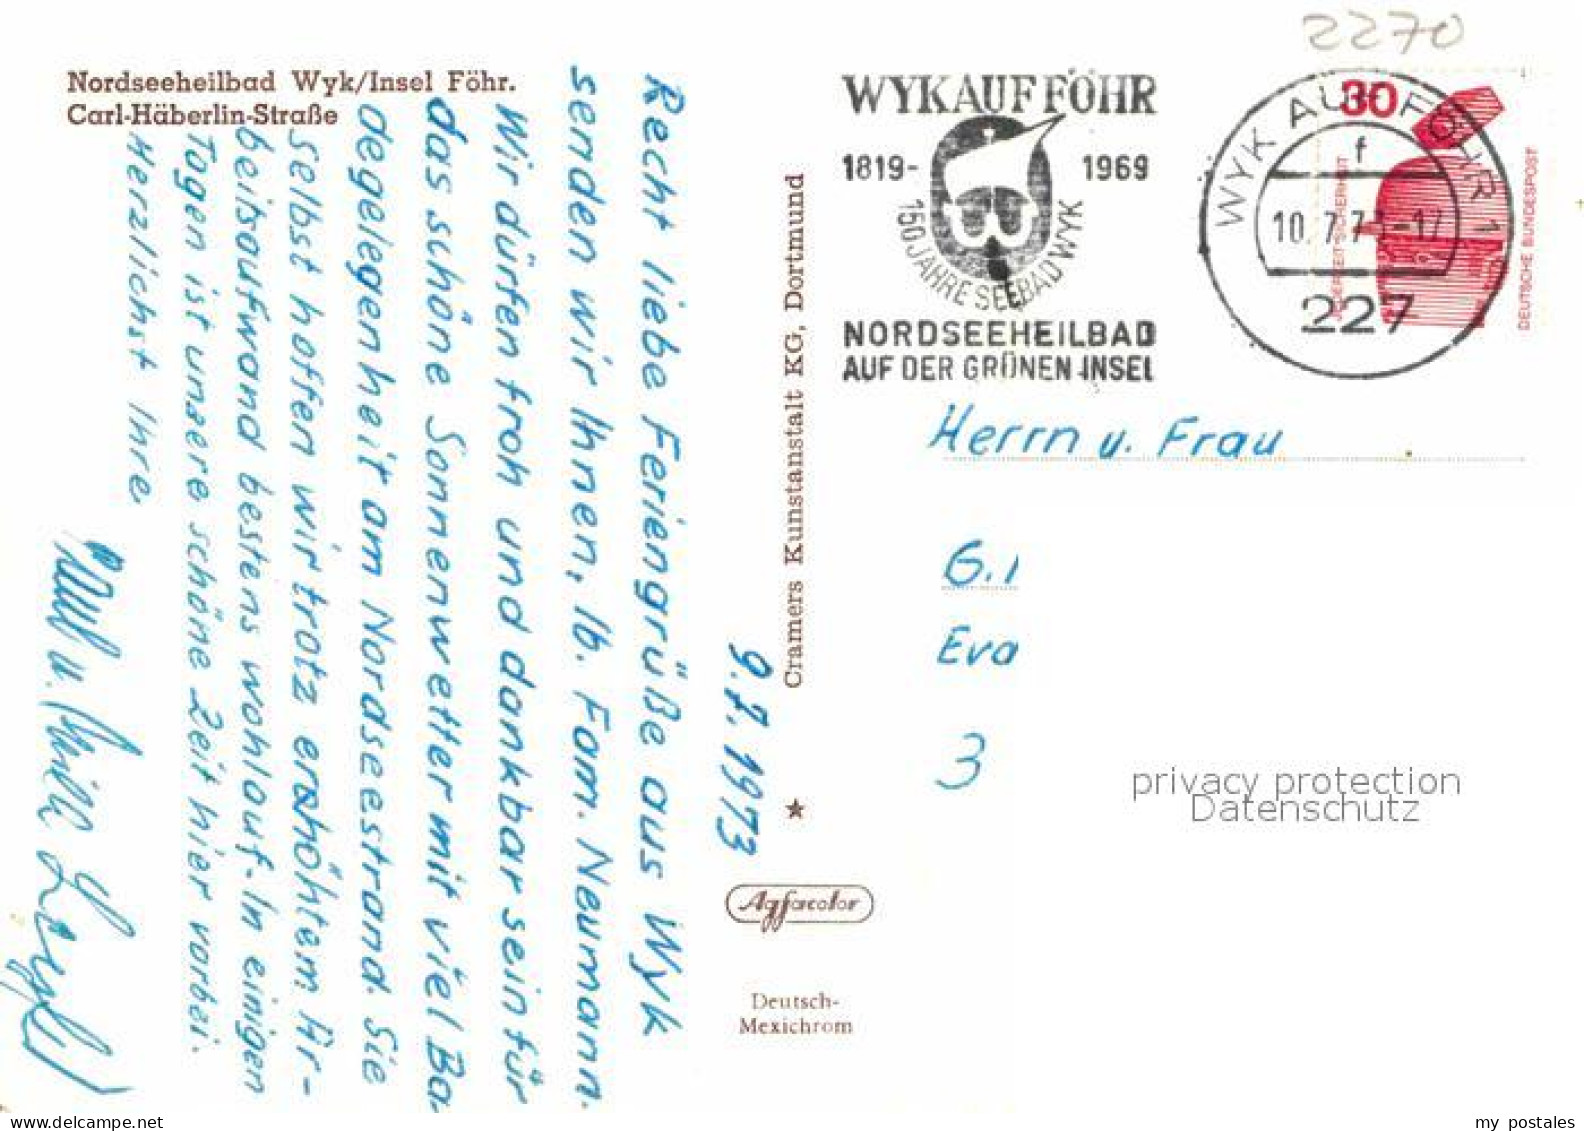 2270
Nordseeheilbad Wyk/Insel Föhr.
Carl-Häberlin-Straße
9.7.1973
Recht liebe Feriengrüße aus Wyk
senden wir Ihnen, lb. Fam. Neumann.
Wir dürfen froh und dankbar sein für
das schöne Sonnenwetter mit viel Ba-
degelegenheit am Nordseestrand. Sie
selbst hoffen wir trotz erhöhtem Ar-
beitsaufwand bestens wohlauf. In einigen
Tagen ist unsere schöne Zeit hier vorbei.
Herzlichst Ihre
Cramers Kunstanstalt KG, Dortmund
Agfacolor
Deutsch-
Mexichrom
WYK AUF FÖHR
1819- 1969
150 JAHRE SEEBAD WYK
NORDSEEHEILBAD
AUF DER GRÜNEN INSEL
WYK AUF FÖHR 1
f
10.7.7 -17
227
30
JEDERZEIT SICHERHEIT
DEUTSCHE BUNDESPOST
Herrn u. Frau
G.
Eva
3
privacy protection
Datenschutz
www.delcampe.net
my postales